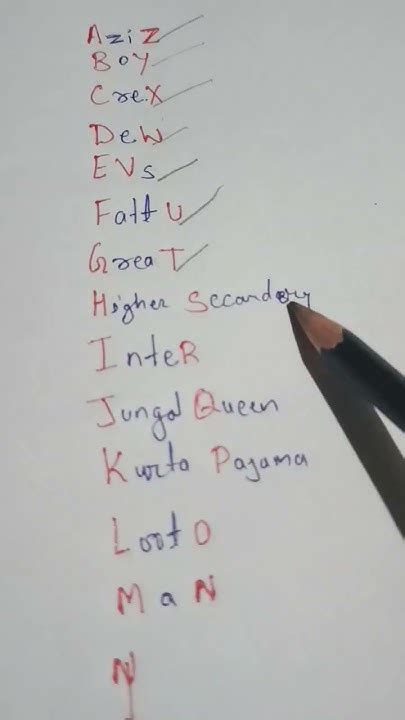 AziZ
BoY
CreX
DeW
EVs
Faltt U
GreaT
Higher Secandory
InteR
Jungal Queen
Kurta Pajama
Loot O
MaN
N